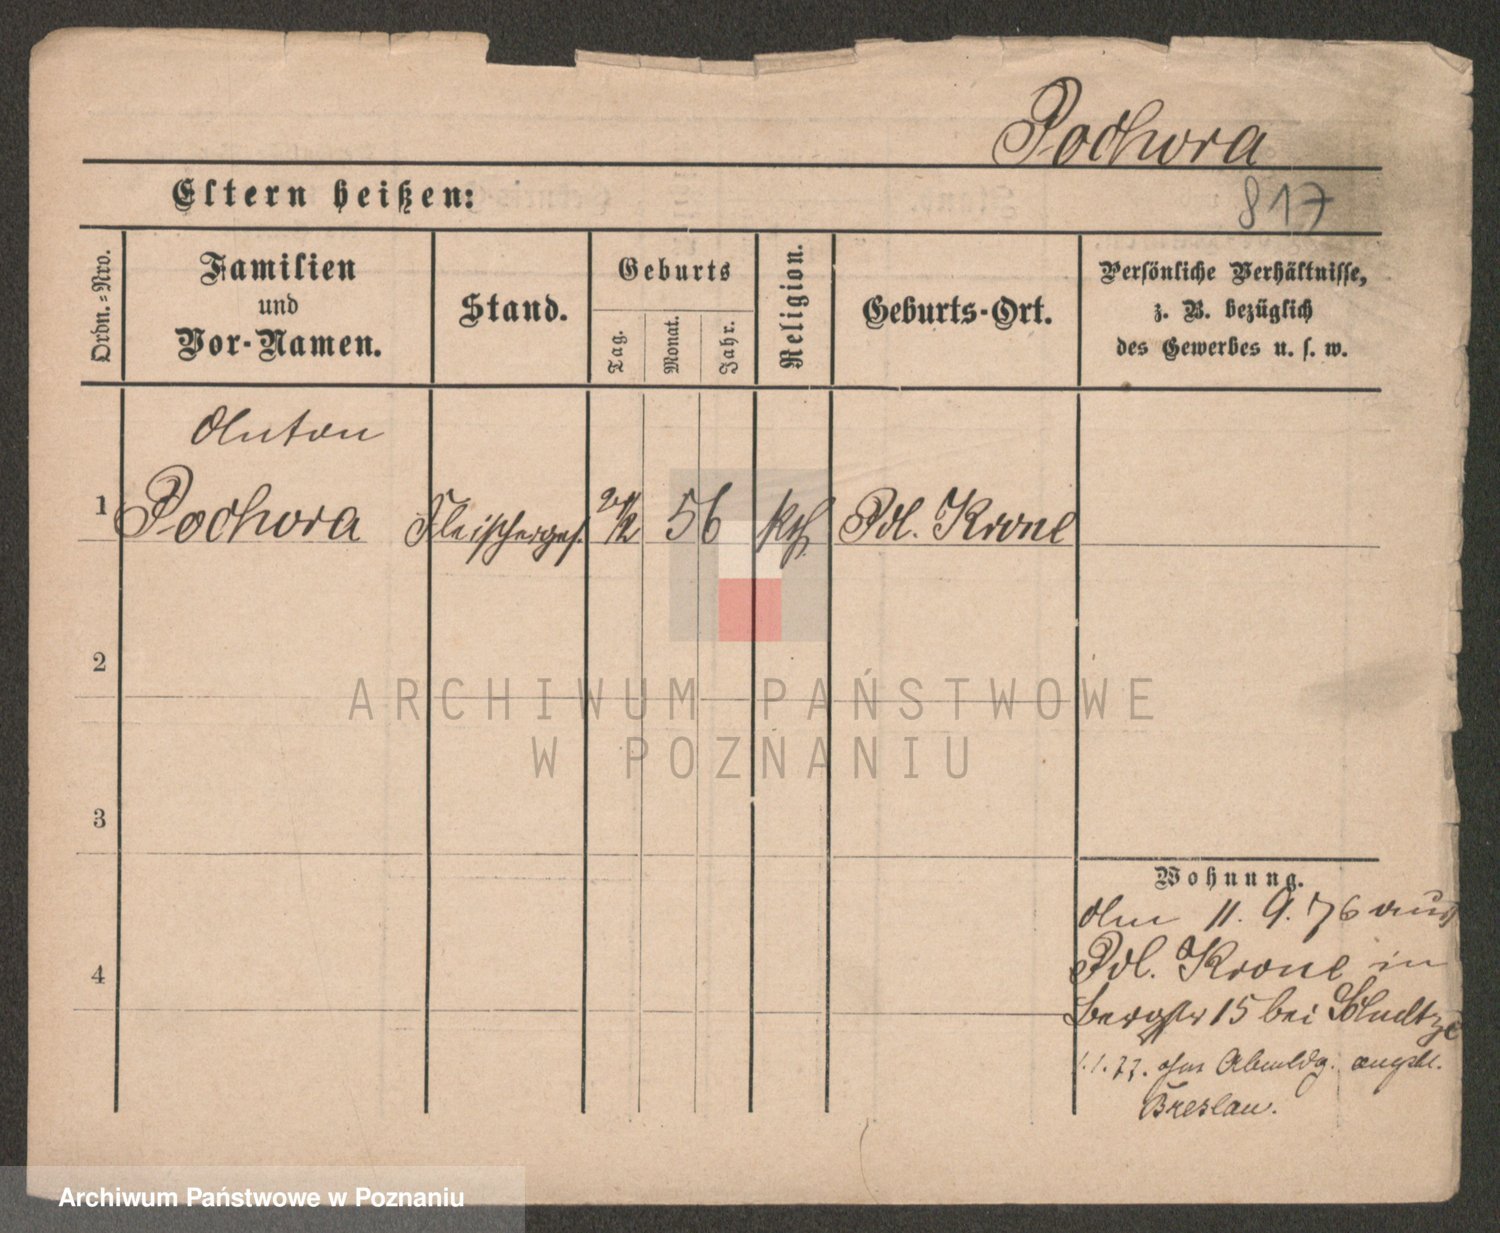 Pochwra
Eltern heißen:
817
Ordn.-Nro.
Familien
und
Vor-Namen.
Stand.
Geburts
Tag.
Monat.
Jahr.
Religion.
Geburts-Ort.
Persönliche Verhältnisse,
z. B. bezüglich
des Gewerbes u. s. w.
Anton
1 Pochwra Fleischerges. 56 kth Pdl. Krone
2
3
4
Wohnung.
Am 11. 9. 76 aus
Pdl. Krone in
Bergstr 15 bei
1. 1. 77. ohne Abmeldg. angebl.
Breslau.
ARCHIWUM PAŃSTWOWE
W POZNANIU
Archiwum Państwowe w Poznaniu